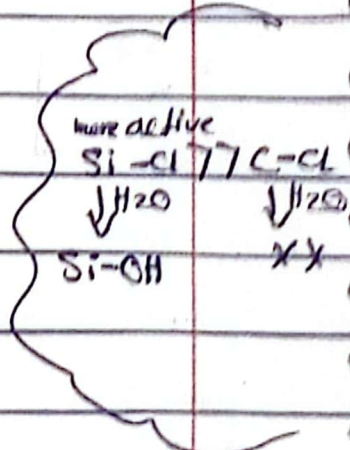 more active
Si-Cl >> C-Cl
H2O H2O
Si-OH XX